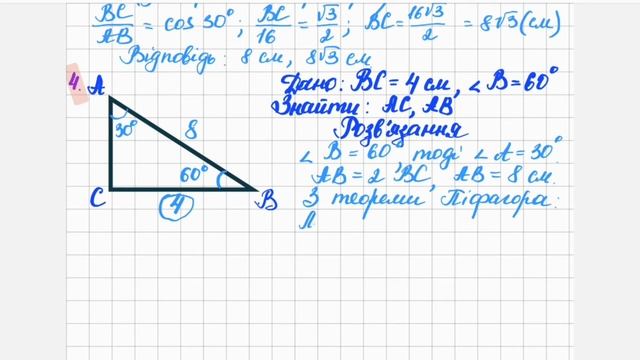 BC/AB = cos 30°; BC/16 = √3/2; BC = 16√3/2 = 8√3 (см)
Відповідь: 8 см, 8√3 см
4.
A
Дано: BC = 4 см, ∠B = 60°
Знайти: AC, AB
Розв'язання
30°
8
∠B = 60°, тоді ∠A = 30°
60°
AB = 2 BC, AB = 8 см.
C
4
B
З теореми Піфагора: